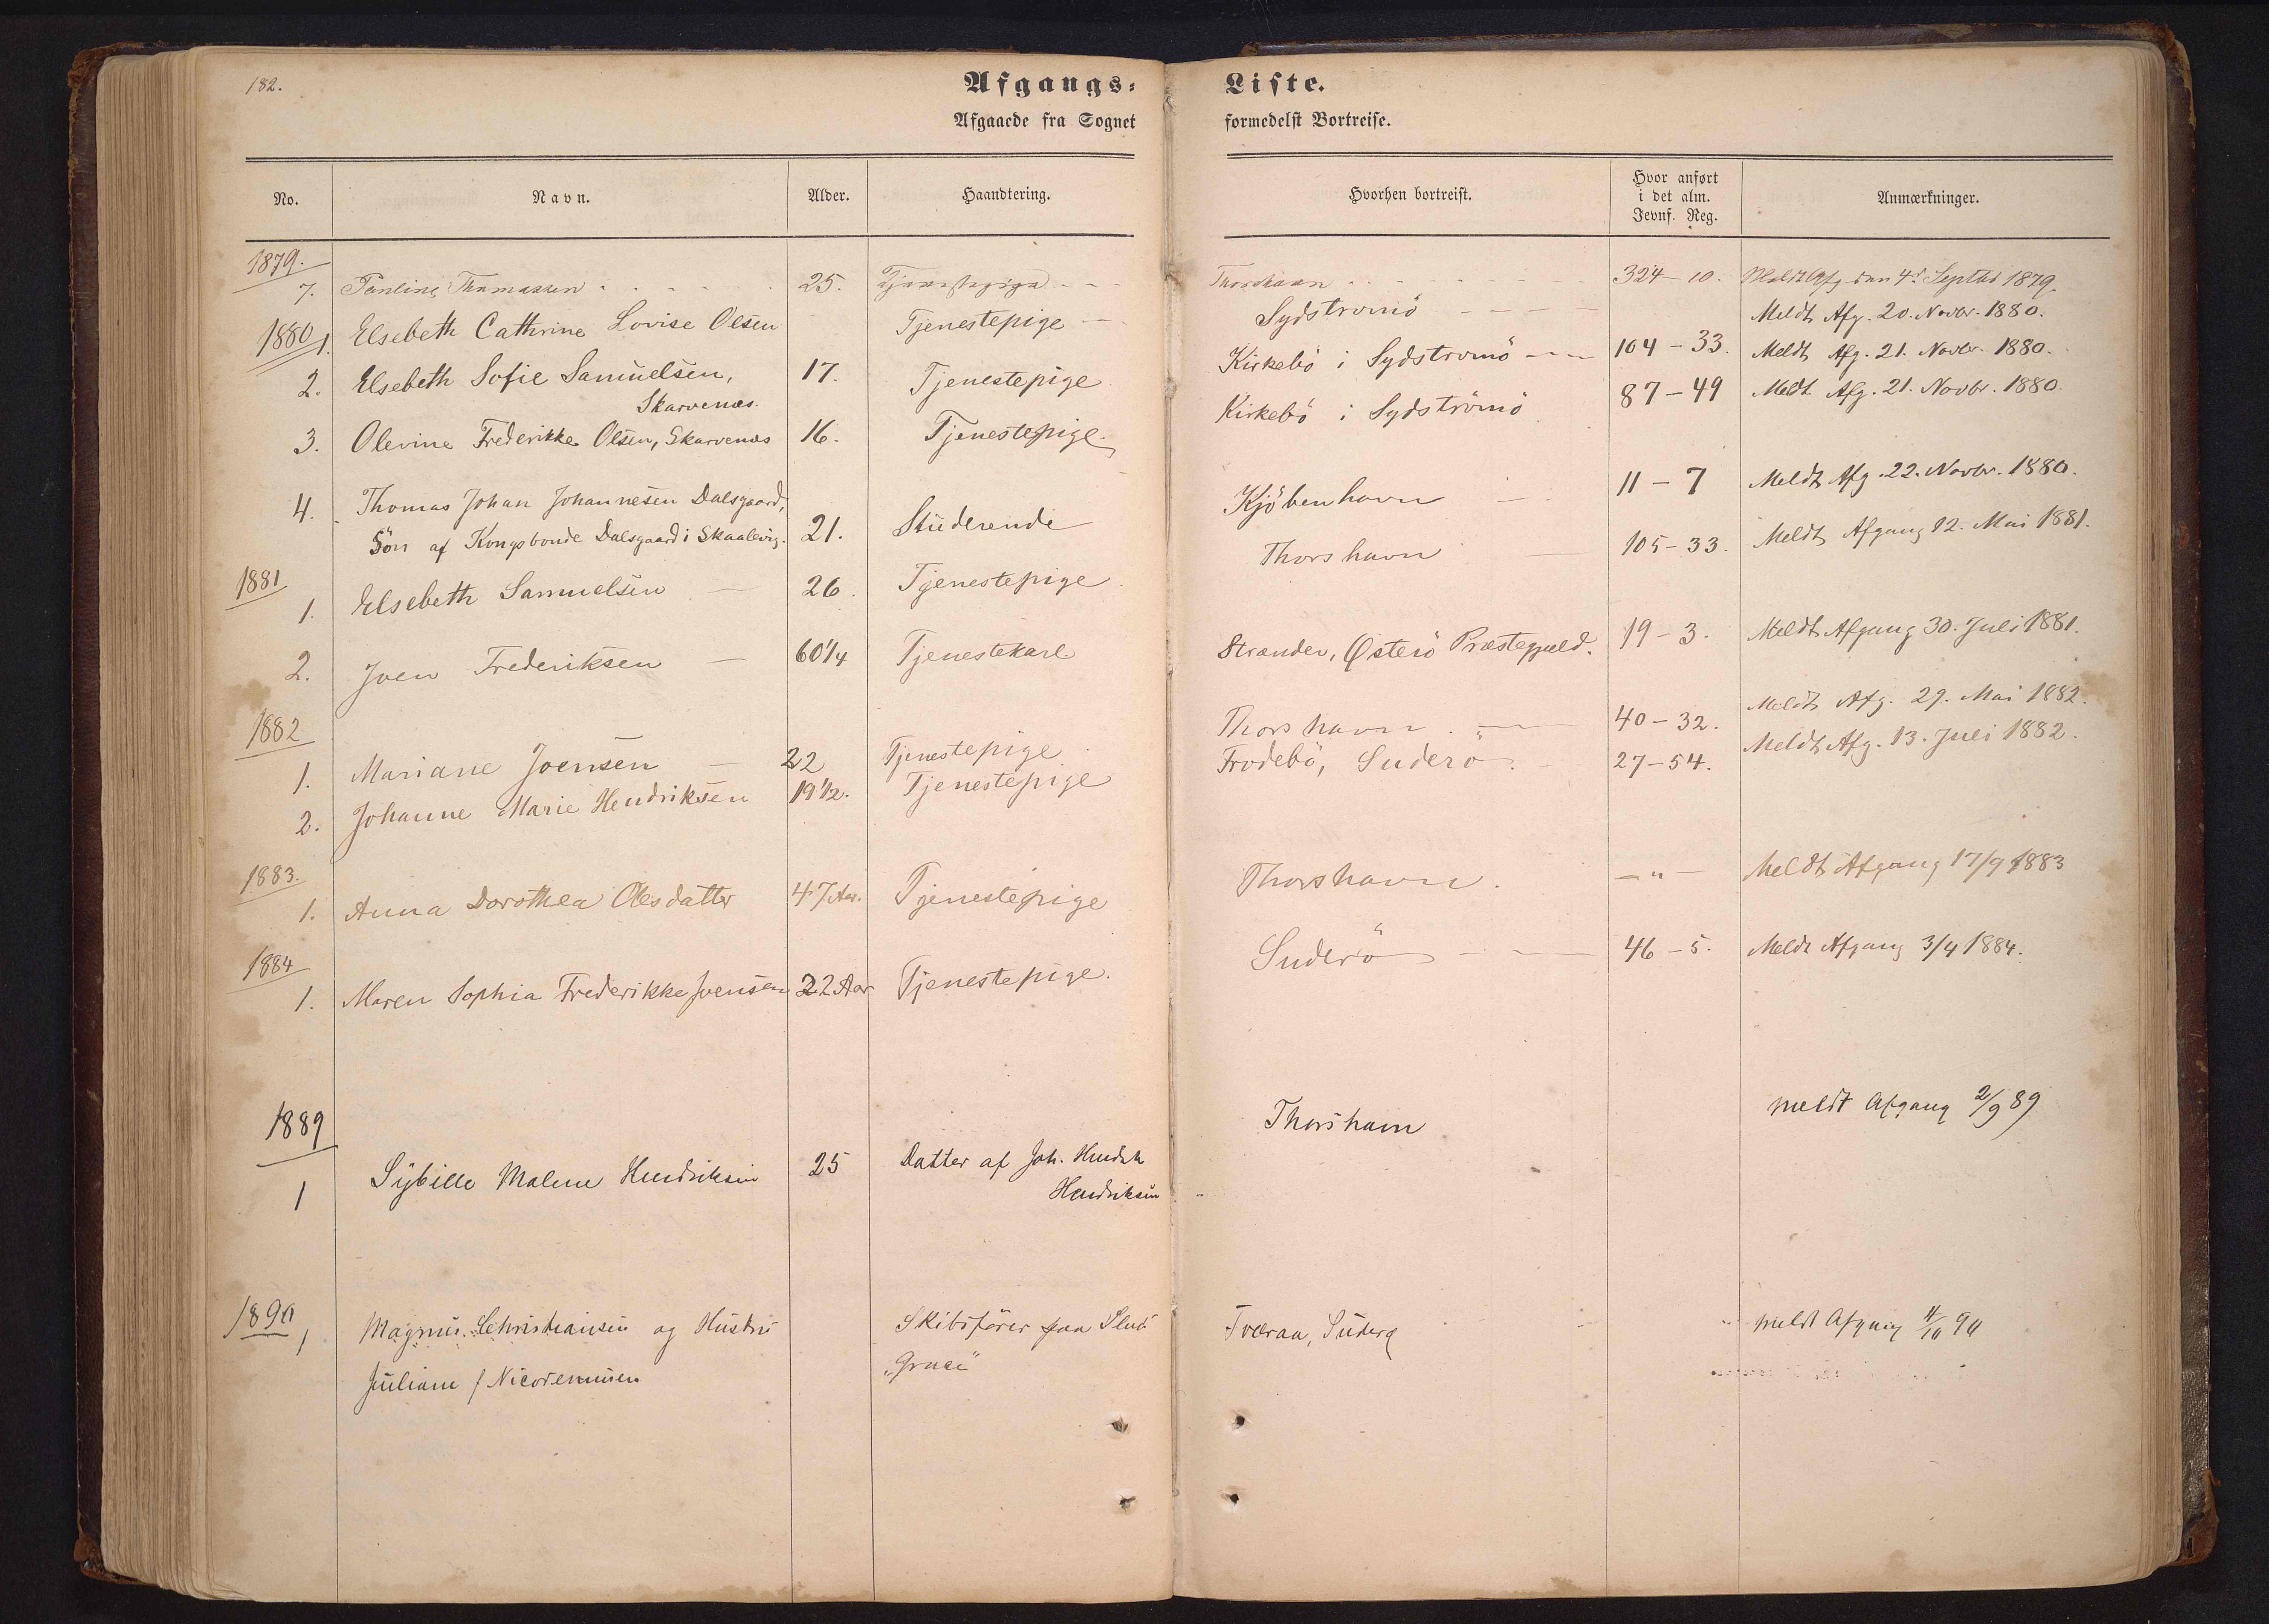 182.
Afgangs-
Afgaaede fra Sognet
No.
Navn.
Alder.
Haandtering.
1879.
7. Pauline Thomassen 25. Tjenestepige
1880 1. Elsebeth Cathrine Lovise Olsen Tjenestepige
2. Elsebeth Sofie Samuelsen, 17. Tjenestepige
Skarvenæs.
3. Olevine Frederikke Olsen, Skarvenæs 16. Tjenestepige.
4. Thomas Johan Johannesen Dalsgaard,
Sön af Kongsbonde Dalsgaard i Skaalevig. 21. Studerende
1881
1. Elsebeth Samuelsen 26. Tjenestepige
2. Joen Frederiksen 60 1/4 Tjenestekarl
1882
1. Mariane Joensen 22 Tjenestepige
2. Johanne Marie Hendriksen 19 1/2. Tjenestepige
1883.
1. Anna Dorothea Olesdatter 47 Aar. Tjenestepige
1884
1. Maren Sophia Frederikke Joensen 22 Aar Tjenestepige.
1889
1 Sybille Malene Hendriksen 25 Datter af Joh. Hendrik
Hendriksen
1890
1 Magnus Christiansen og Hustru Skibsfører paa
Juliane f Nicodemusen
Liste.
formedelst Bortreise.
Hvorhen bortreist.
Hvor anført
i det alm.
Jevnf. Reg.
Anmærkninger.
Thorshavn 324-10. Meldt Afg. den 4d Septbr 1879.
Sydströmö Meldt Afg. 20. Novbr. 1880.
Kirkebö i Sydströmö 104-33. Meldt Afg. 21. Novbr. 1880.
Kirkebö i Sydströmö 87-49 Meldt Afg. 21. Novbr. 1880.
Kjöbenhavn 11-7 Meldt Afg. 22. Novbr. 1880.
Thorshavn 105-33. Meldt Afgang 12. Mai 1881.
Strander, Østerö Præstegjeld. 19-3. Meldt Afgang 30. Juli 1881.
Thorshavn 40-32. Meldt Afg. 29. Mai 1882.
Frodebö, Suderö. 27-54. Meldt Afg. 13. Juli 1882.
Thorshavn. -"- Meldt Afgang 17/9 1883
Suderö 46-5. Meldt Afgang 3/4 1884.
Thorshavn meldt Afgang 2/9 89
Tveraa, Suderø meldt Afgang 11/10 90